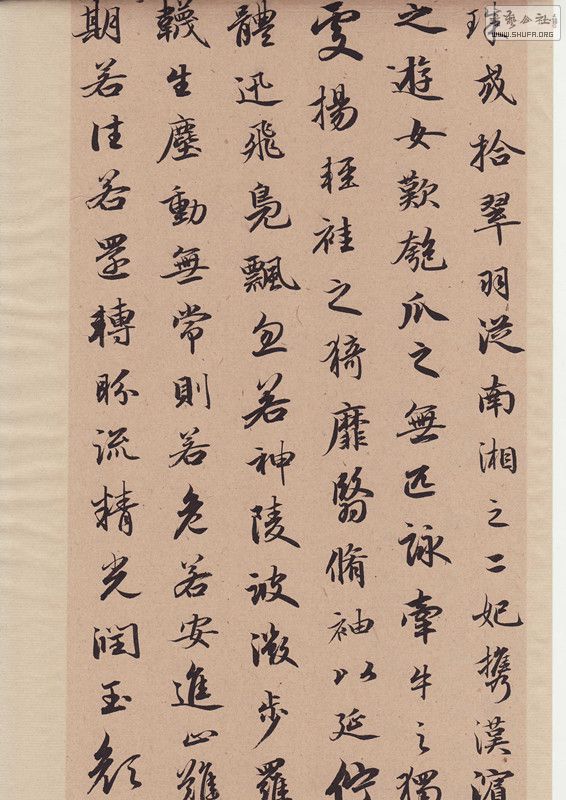 書藝公社
WWW.SHUFA.ORG
珠或拾翠羽從南湘之二妃攜漢濱
之遊女歎匏瓜之無匹詠牽牛之獨
處揚輕袿之猗靡翳脩袖以延佇
體迅飛鳧飄忽若神陵波微步羅
韈生塵動無常則若危若安進止難
期若往若還轉眄流精光潤玉顏